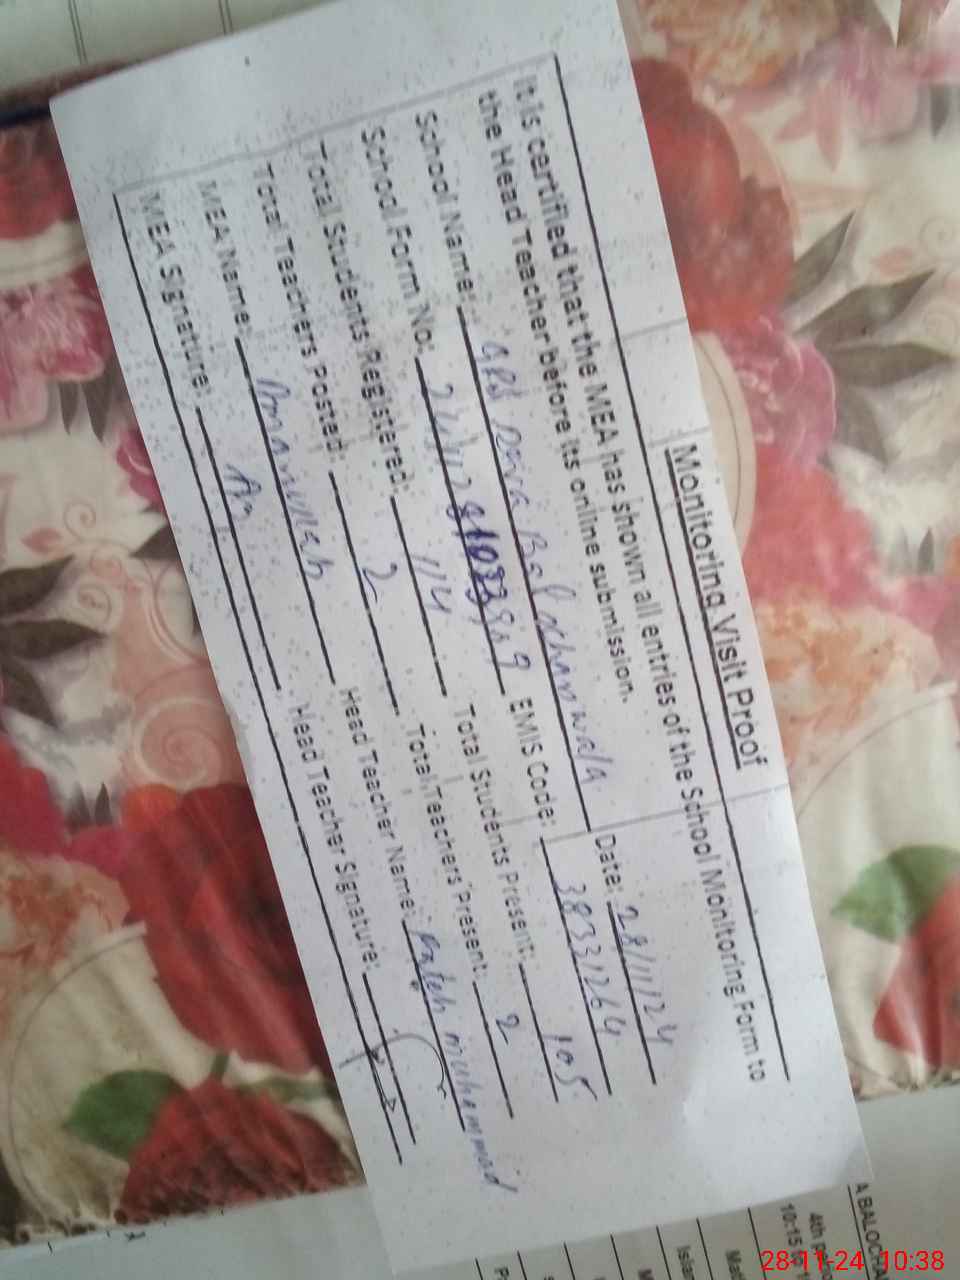 Monitoring Visit Proof
It is certified that the MEA has shown all entries of the School Monitoring Form to
the Head Teacher before its online submission.
Date: 28/11/24
School Name: GPS Dera Balochanwala
School Form No: EMIS Code: 38331264
Total Students Registered: 114 Total Students Present: 105
Total Teachers Posted: 2 Total Teachers Present: 2
MEA Name: Amanullah Head Teacher Name: Fateh muhammad
MEA Signature: Am Head Teacher Signature:
A BALOCHA
4th P
10:15 to
Ma
Islan
M
28-11-24 10:38